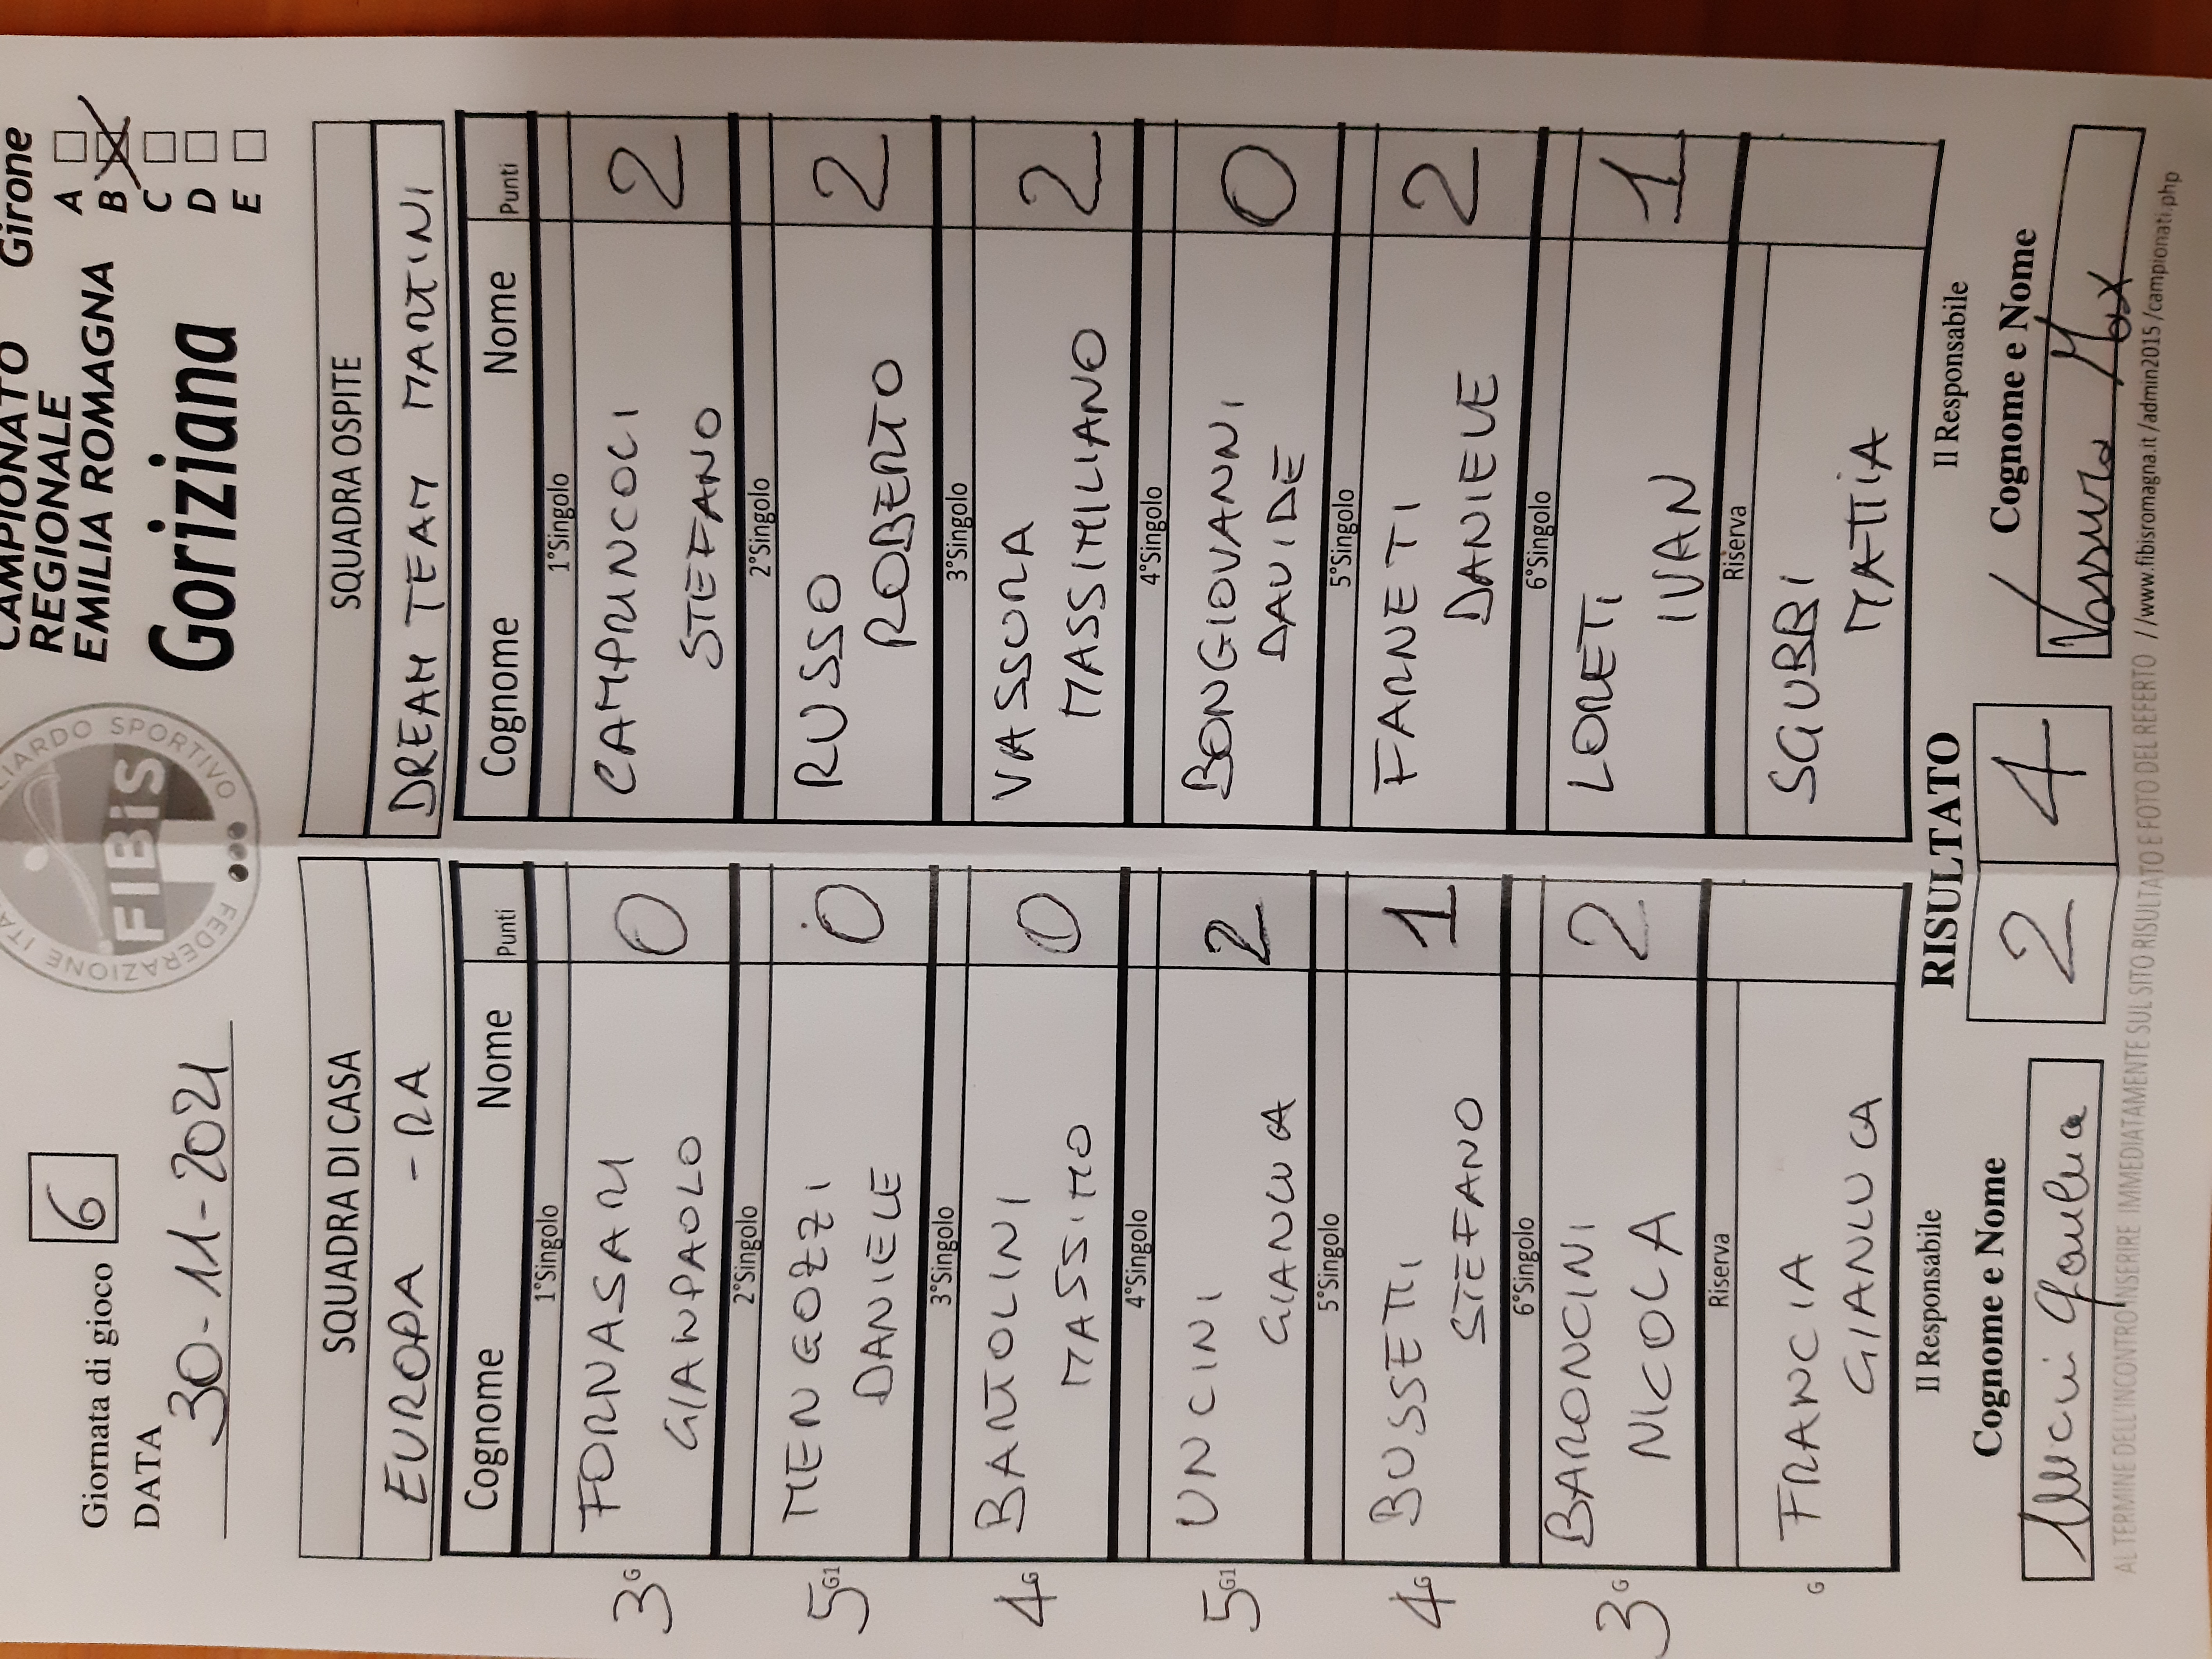 Giornata di gioco 6
DATA
30-11-2021
FEDERAZIONE ITA
LIARDO SPORTIVO
FIBiS
CAMPIONATO
REGIONALE
EMILIA ROMAGNA
Goriziana
Girone
A
B
C
D
E
SQUADRA DI CASA
EUROPA - RA
Cognome Nome Punti
1°Singolo
3 G FORNASARI GIANPAOLO 0
2°Singolo
5 G1 MENGOZZI DANIELE 0
3°Singolo
4 G BARTOLINI MASSIMO 0
4°Singolo
5 G1 UNCINI GIANLUCA 2
5°Singolo
4 G BUSSETTI STEFANO 1
6°Singolo
3 G BARONCINI NICOLA 2
Riserva
G FRANCIA GIANLUCA
SQUADRA OSPITE
DREAM TEAM MARTINI
Cognome Nome Punti
1°Singolo
CAMPRINCOLI STEFANO 2
2°Singolo
RUSSO ROBERTO 2
3°Singolo
VASSURA MASSIMILIANO 2
4°Singolo
BONGIOVANNI DAVIDE 0
5°Singolo
FARNETI DANIELE 2
6°Singolo
LORETI IVAN 1
Riserva
SGUBBI MATTIA
Il Responsabile
Cognome e Nome
Uncini Gianluca
RISULTATO
2 4
Il Responsabile
Cognome e Nome
Vassura Max
AL TERMINE DELL'INCONTRO INSERIRE IMMEDIATAMENTE SUL SITO RISULTATO E FOTO DEL REFERTO //www.fibisromagna.it/admin2015/campionati.php